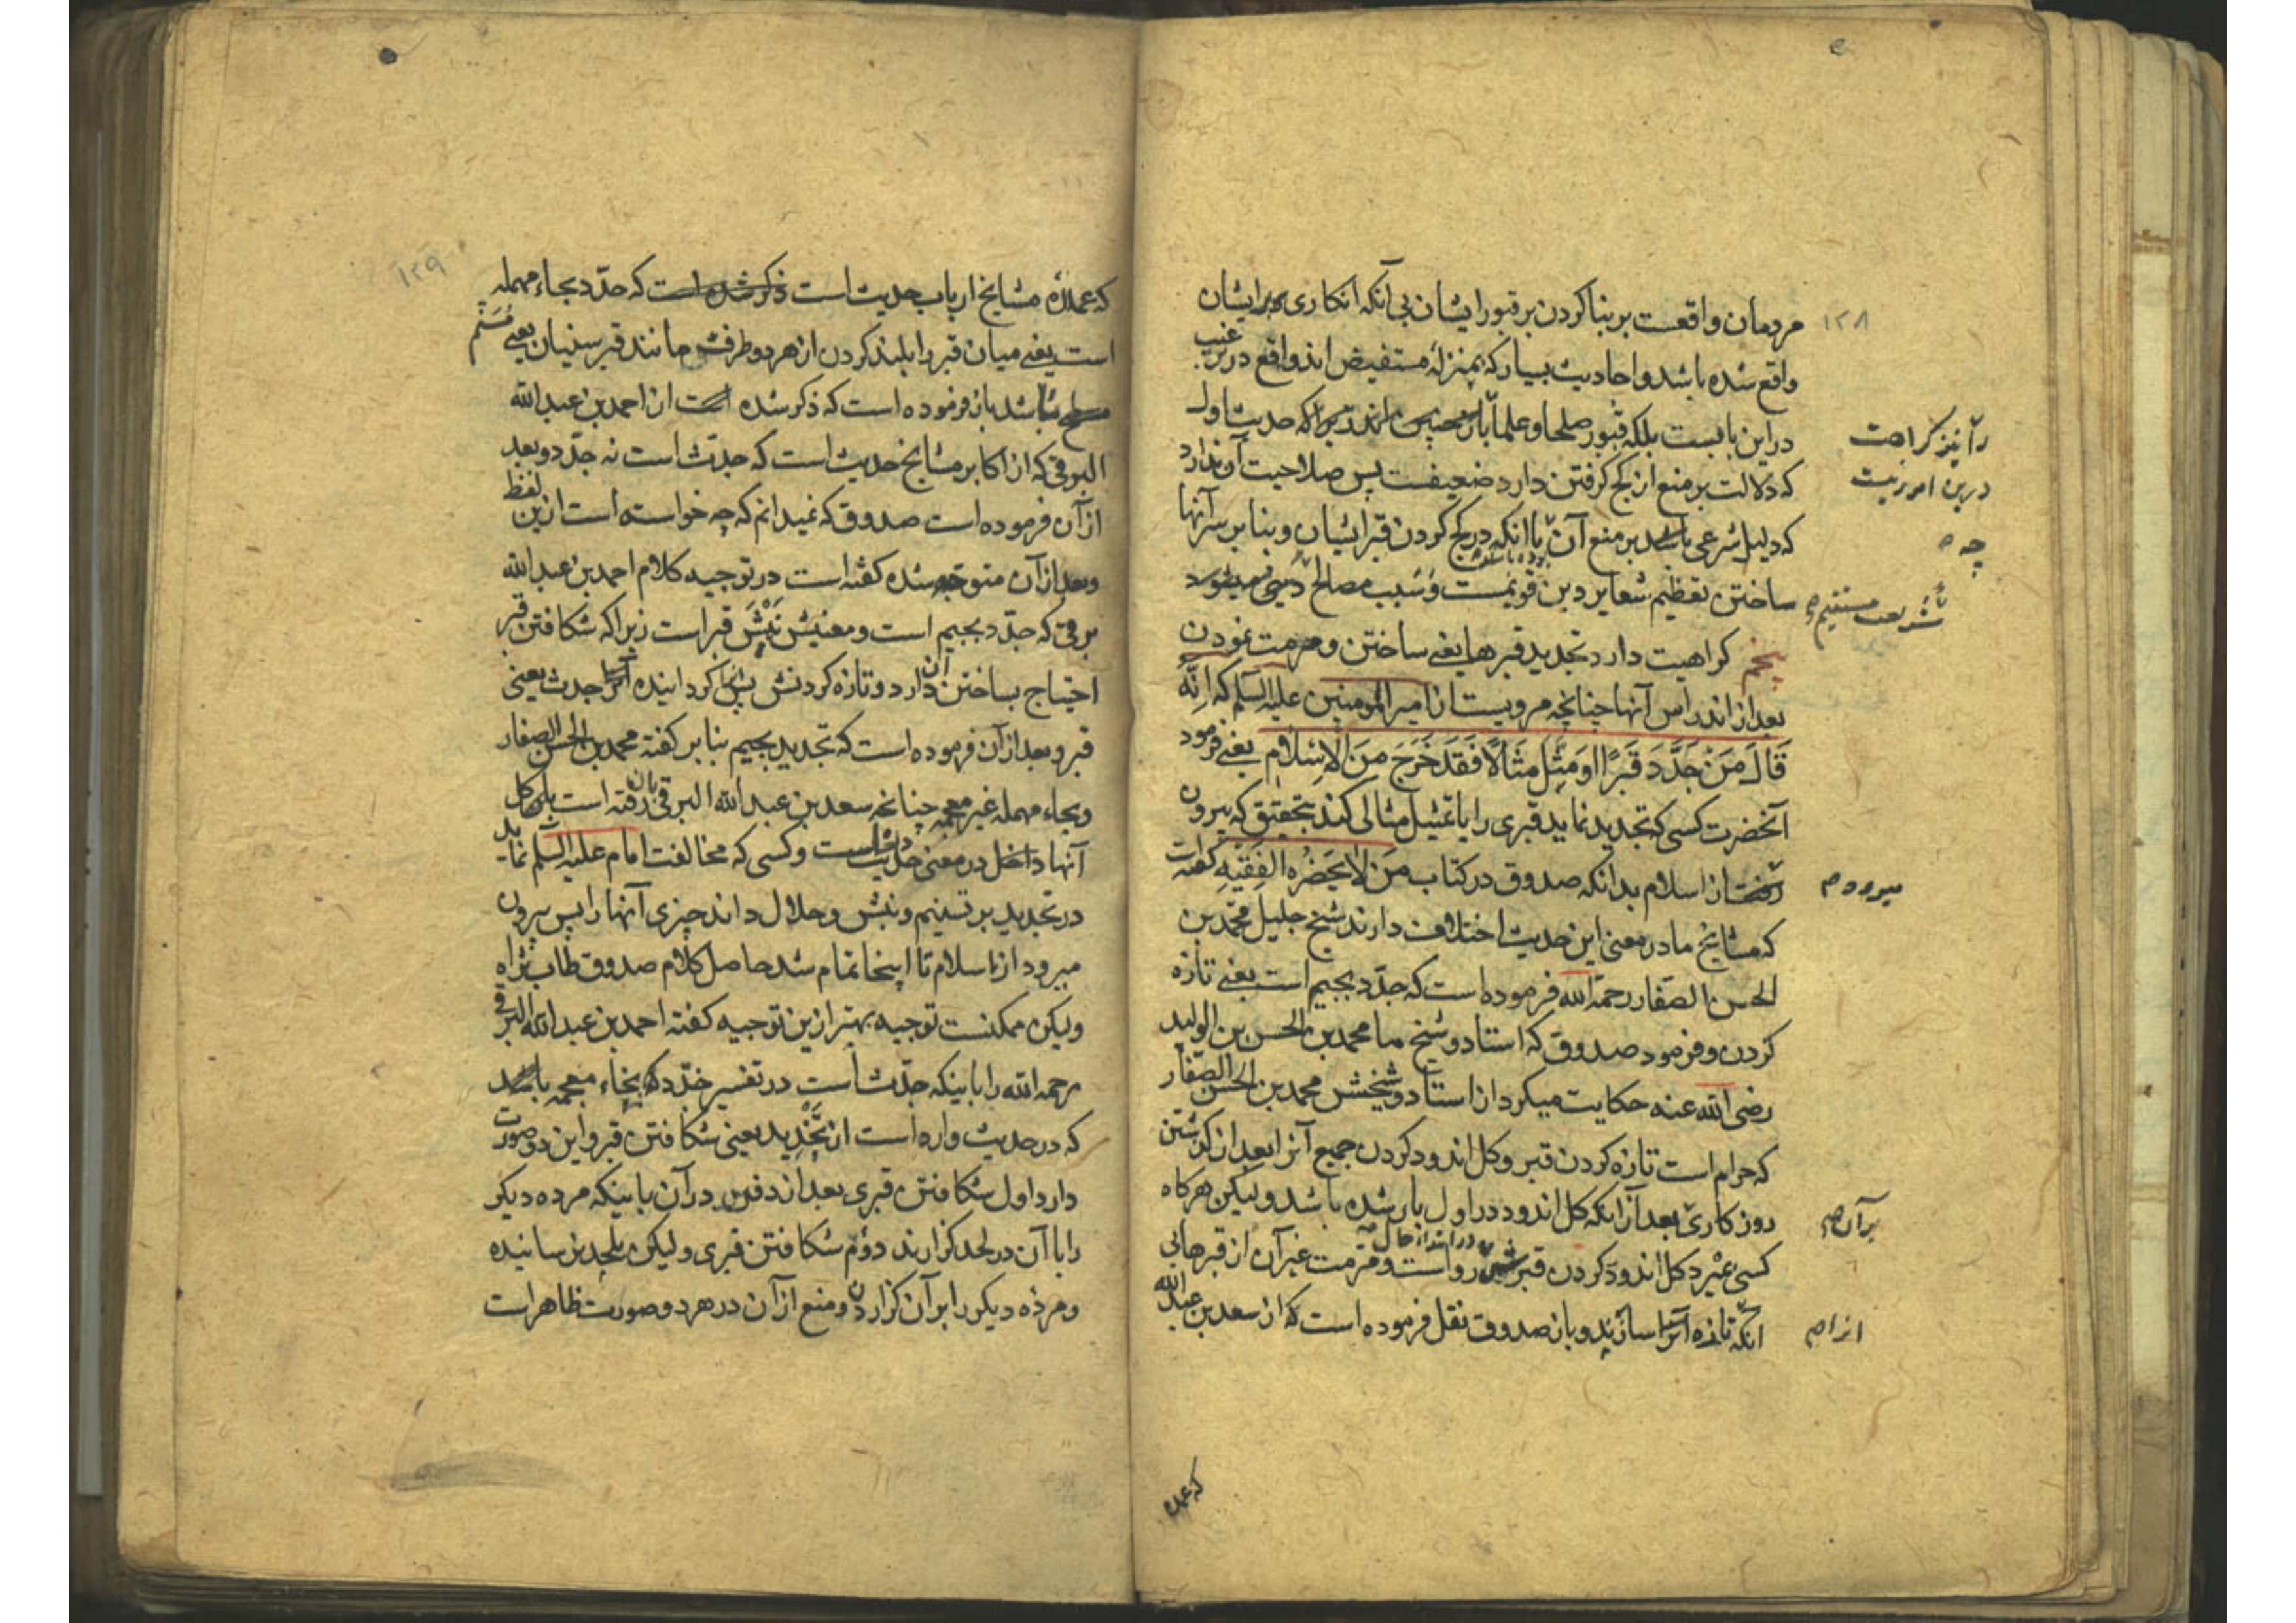 ۱۲۸
مردمان واقعست بر بنا کردن بر قبور ایشان بی آنکه انکاری بر ایشان
واقع شده باشد و احادیث بسیار که بمنزلهٔ مستفیض اند واقع در ترغیب
در این بابست بلکه قبور صلحا و علما را که حدیث اول
را نیز کراهت
که دلالت بر منع از کج کرفتن دارد ضعیفست پس صلاحیت آن ندارد
درین امور نیست
که دلیل شرعی باشد بر منع آن با آنکه در کج کردن قبر ایشان و بنا بر سر آنها
چه
ساختن تعظیم شعایر دین قویمست و سبب مصالح دینی میشود
شریعت مستقیم
پنجم کراهیت دارد تجدید قبرها یعنے ساختن و مرمت نمودن
بعد از اندراس آنها چنانچه مرویست از امیر المومنین علیه السلم که اِنَّهُ
قَالَ مَنْ جَدَّدَ قَبْرًا اَوْ مَثَّلَ مِثَالًا فَقَدْ خَرَجَ مِنَ الْاِسْلَامِ یعنے فرمود
آنحضرت کسی که تجدید نماید قبری را یا تمثیل مثالی کند بتحقیق که بیرون
از اسلام بدانکه صدوق در کتاب مَنْ لَا یَحْضُرُهُ الفَقِیْه کفته است
میرود
که مشایخ ما در معنی این حدیث اختلاف دارند شیخ جلیل محمّد بن
الحسن الصفار رحمه الله فرموده است که جدّد بجیم است یعنے تازه
کردن و فرمود صدوق که استاد و شیخ ما محمد بن الحسن بن الولید
رضی الله عنه حکایت میکرد از استاد و شیخش محمد بن الحسن الصفار
که حرام است تازه کردن قبر و کل اندود کردن جمیع آنرا بعد از کذشتن
روزکاری بعد از آنکه کل اندود در اول بار شده باشد و لیکن هرکاه
بر آن
کسی بمیرد کل اندود کردن قبرش رواست و مرمت غیر آن از قبرهایی
در ابتداء حال
آنکه تازه آنرا سازند و باز صدوق نقل فرموده است که از سعد بن عبد الله
از ا
که عمده
۱۲۹
که عمدهٔ مشایخ ارباب حدیث است ذکر شده است که حدّد بحاء مهمله
است یعنے میان قبر را بلند کردن از هر دو طرفش مانند قبر سنیان یعنے مُسَنَّم
باشد باز فرموده است که ذکر شده است از احمد بن عبد الله
البرقی که از اکابر مشایخ حدیث است که جدث است نه جدّد و بعد
از آن فرموده است صدوق که نمیدانم که چه خواسته است ازین لفظ
و بعد از آن متوجه شده کفته است در توجیه کلام احمد بن عبد الله
برقی که جدّد بجیم است و معنیش نَبْش قبر است زیرا که شکافتن قبر
احتیاج بساختن آن دارد و تازه کردنش پس کردانیده آنرا جدث یعنی
قبر و بعد از آن فرموده است که تجدید بجیم بنا بر کفته محمد بن الحسن الصفار
و بحاء مهمله غیر معجمه چنانچه سعد بن عبد الله البرقی بآن رفته است بلکه کل
آنها داخل در معنی حدیث است و کسی که مخالفت امام علیه السلم نماید
در تجدید بر تسنیم و نبش و حلال داند چیزی آنها را پس بیرون
میرود از اسلام تا اینجا تمام شد حاصل کلام صدوق طاب ثراه
ولیکن ممکنست توجیه بهتر ازین توجیه کفته احمد بن عبد الله البرقی
رحمه الله را باینکه جدّث است در تفسیر خدّد که بخاء معجمه باشد
که در حدیث وارد است از تَخْدِید یعنی شکافتن قبر و این دو صورت
دارد اول شکافتن قبری بعد از دفن در آن باینکه مرده دیکر
را با آن در لحد کزارند دوّم شکافتن قبری و لیکن بلحد نرسانیده
و مردهٔ دیکر را بر آن کزاردن و منع از آن در هر دو صورت ظاهر است